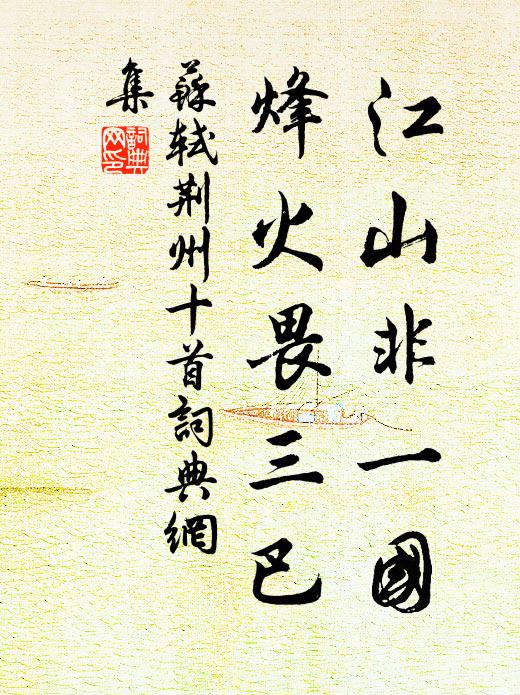 江山非一國
烽火畏三巴
蘇軾荆州十首詞典網
集
詞典
网印